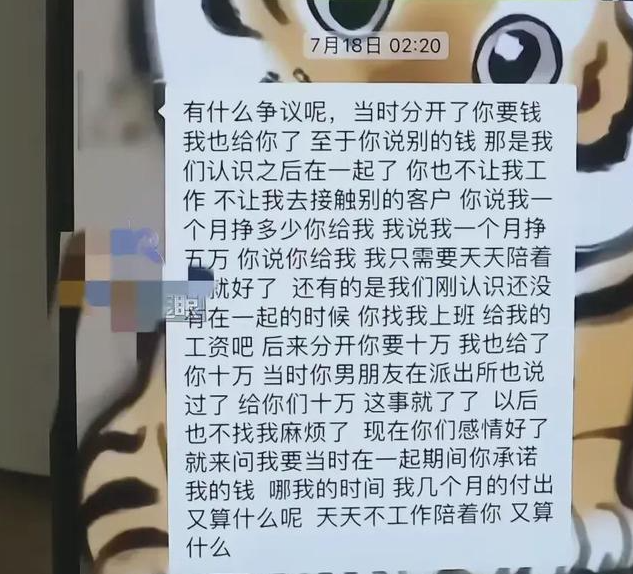 7月18日 02:20
有什么争议呢，当时分开了你要钱
我也给你了 至于你说别的钱 那是我
们认识之后在一起了 你也不让我工
作 不让我去接触别的客户 你说我一
个月挣多少你给我 我说我一个月挣
五万 你说你给我 我只需要天天陪着
就好了 还有的是我们刚认识还没
有在一起的时候 你找我上班 给我的
工资吧 后来分开你要十万 我也给了
你十万 当时你男朋友在派出所也说
过了 给你们十万 这事就了了 以后
也不找我麻烦了 现在你们感情好了
就来问我要当时在一起期间你承诺
我的钱 哪我的时间 我几个月的付出
又算什么呢 天天不工作陪着你 又算
什么